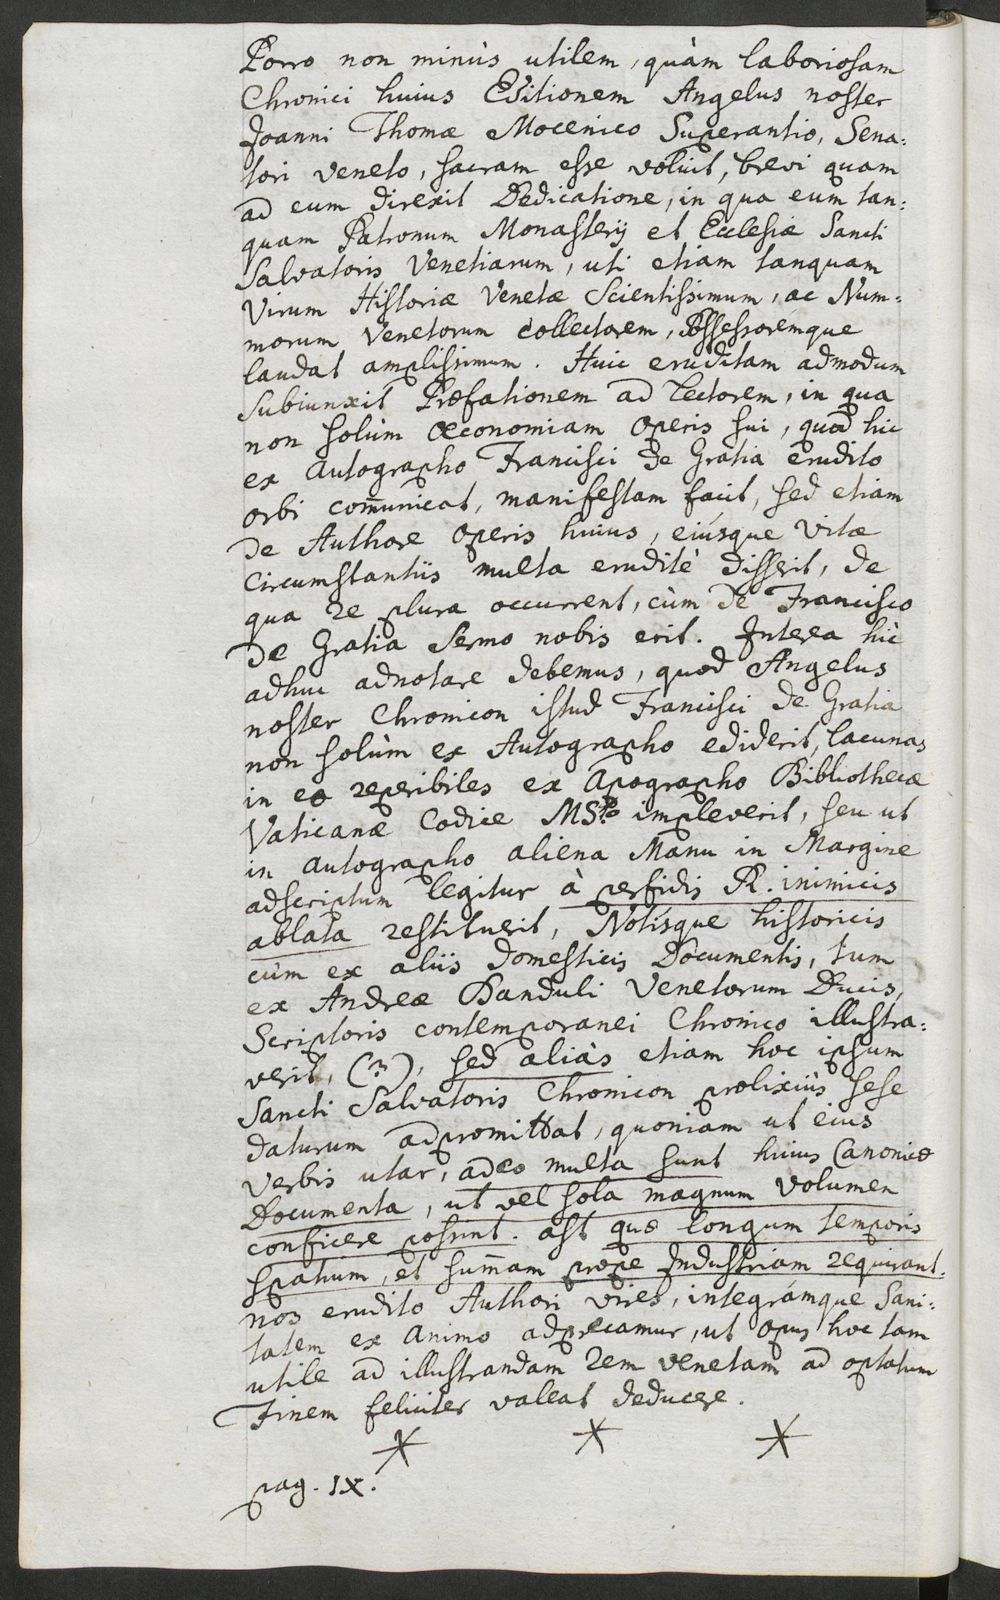 Porro non minùs utilem, quàm laboriosam
Chronici huius Editionem Angelus noster
Joanni Thomæ Mocenico Superantio, Sena:
tori veneto, sacram esse voluit, brevi quam
ad eum direxit Dedicatione, in qua eum tan:
quam Patronum Monasterij et Ecclesiæ Sancti
Salvatoris Venetiarum, uti etiam tanquam
Virum Historiæ Venetæ Scientissimum, ac Num:
morum Venetorum collectorem, Possessoremque
laudat amplissimum. Huic eruditam admodum
Subiunxit Præfationem ad Lectorem, in qua
non solùm œconomiam operis sui, quod hic
ex Autographo Francisci de Gratia erudito
orbi com̄unicat, manifestam facit, sed etiam
de Authore operis huius, eiúsque Vitæ
Circumstantiis multa eruditè disserit, de
qua re plura occurrent, cùm de Francisco
de Gratia Sermo nobis erit. Interea hìc
adhuc adnotare debemus, quod Angelus
noster Chronicon istud Francisci de Gratia
non solùm ex Autographo ediderit, lacunas
in eo reperibiles ex Apographo Bibliothecæ
Vaticanæ Codice MSpto impleverit, seu ut
in autographo aliena Manu in Margine
adscriptum legitur à perfidis R. inimicis
ablata restituerit, Notísque historicis
cùm ex aliis domesticis Documentis, tum
ex Andreæ Danduli Venetorum Ducis,
Scriptoris contemporanei Chronico illustra:
verit, (n), sed aliàs etiam hoc ipsum
Sancti Salvatoris Chronicon prolixiùs sese
daturum adpromittat, quoniam ut eius
verbis utar, adeo multa sunt huius Canonicæ
Documenta, ut vel sola magnum volumen
conficere possint. ast quæ longum temporis
spatium, et sum̄am prope Industriam requirant.
nos erudito Authori vires, integrámque Sani:
tatem ex animo adprecamur, ut opus hoc tam
utile ad illustrandam rem venetam ad optatum
Finem feliciter valeat deducere.
* * *
pag. IX.